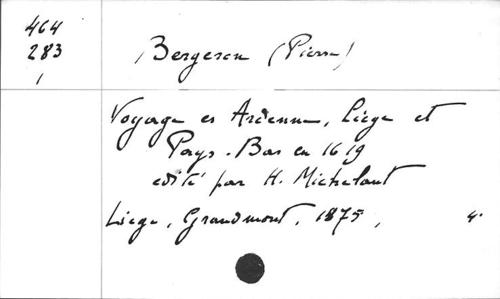 464
283
1
Bergeron (Pierre)
Voyage es Ardenne, Liège et
Pays-Bas en 1619
edité par H. Michelant
Liege, Grandmont, 1875, 4°